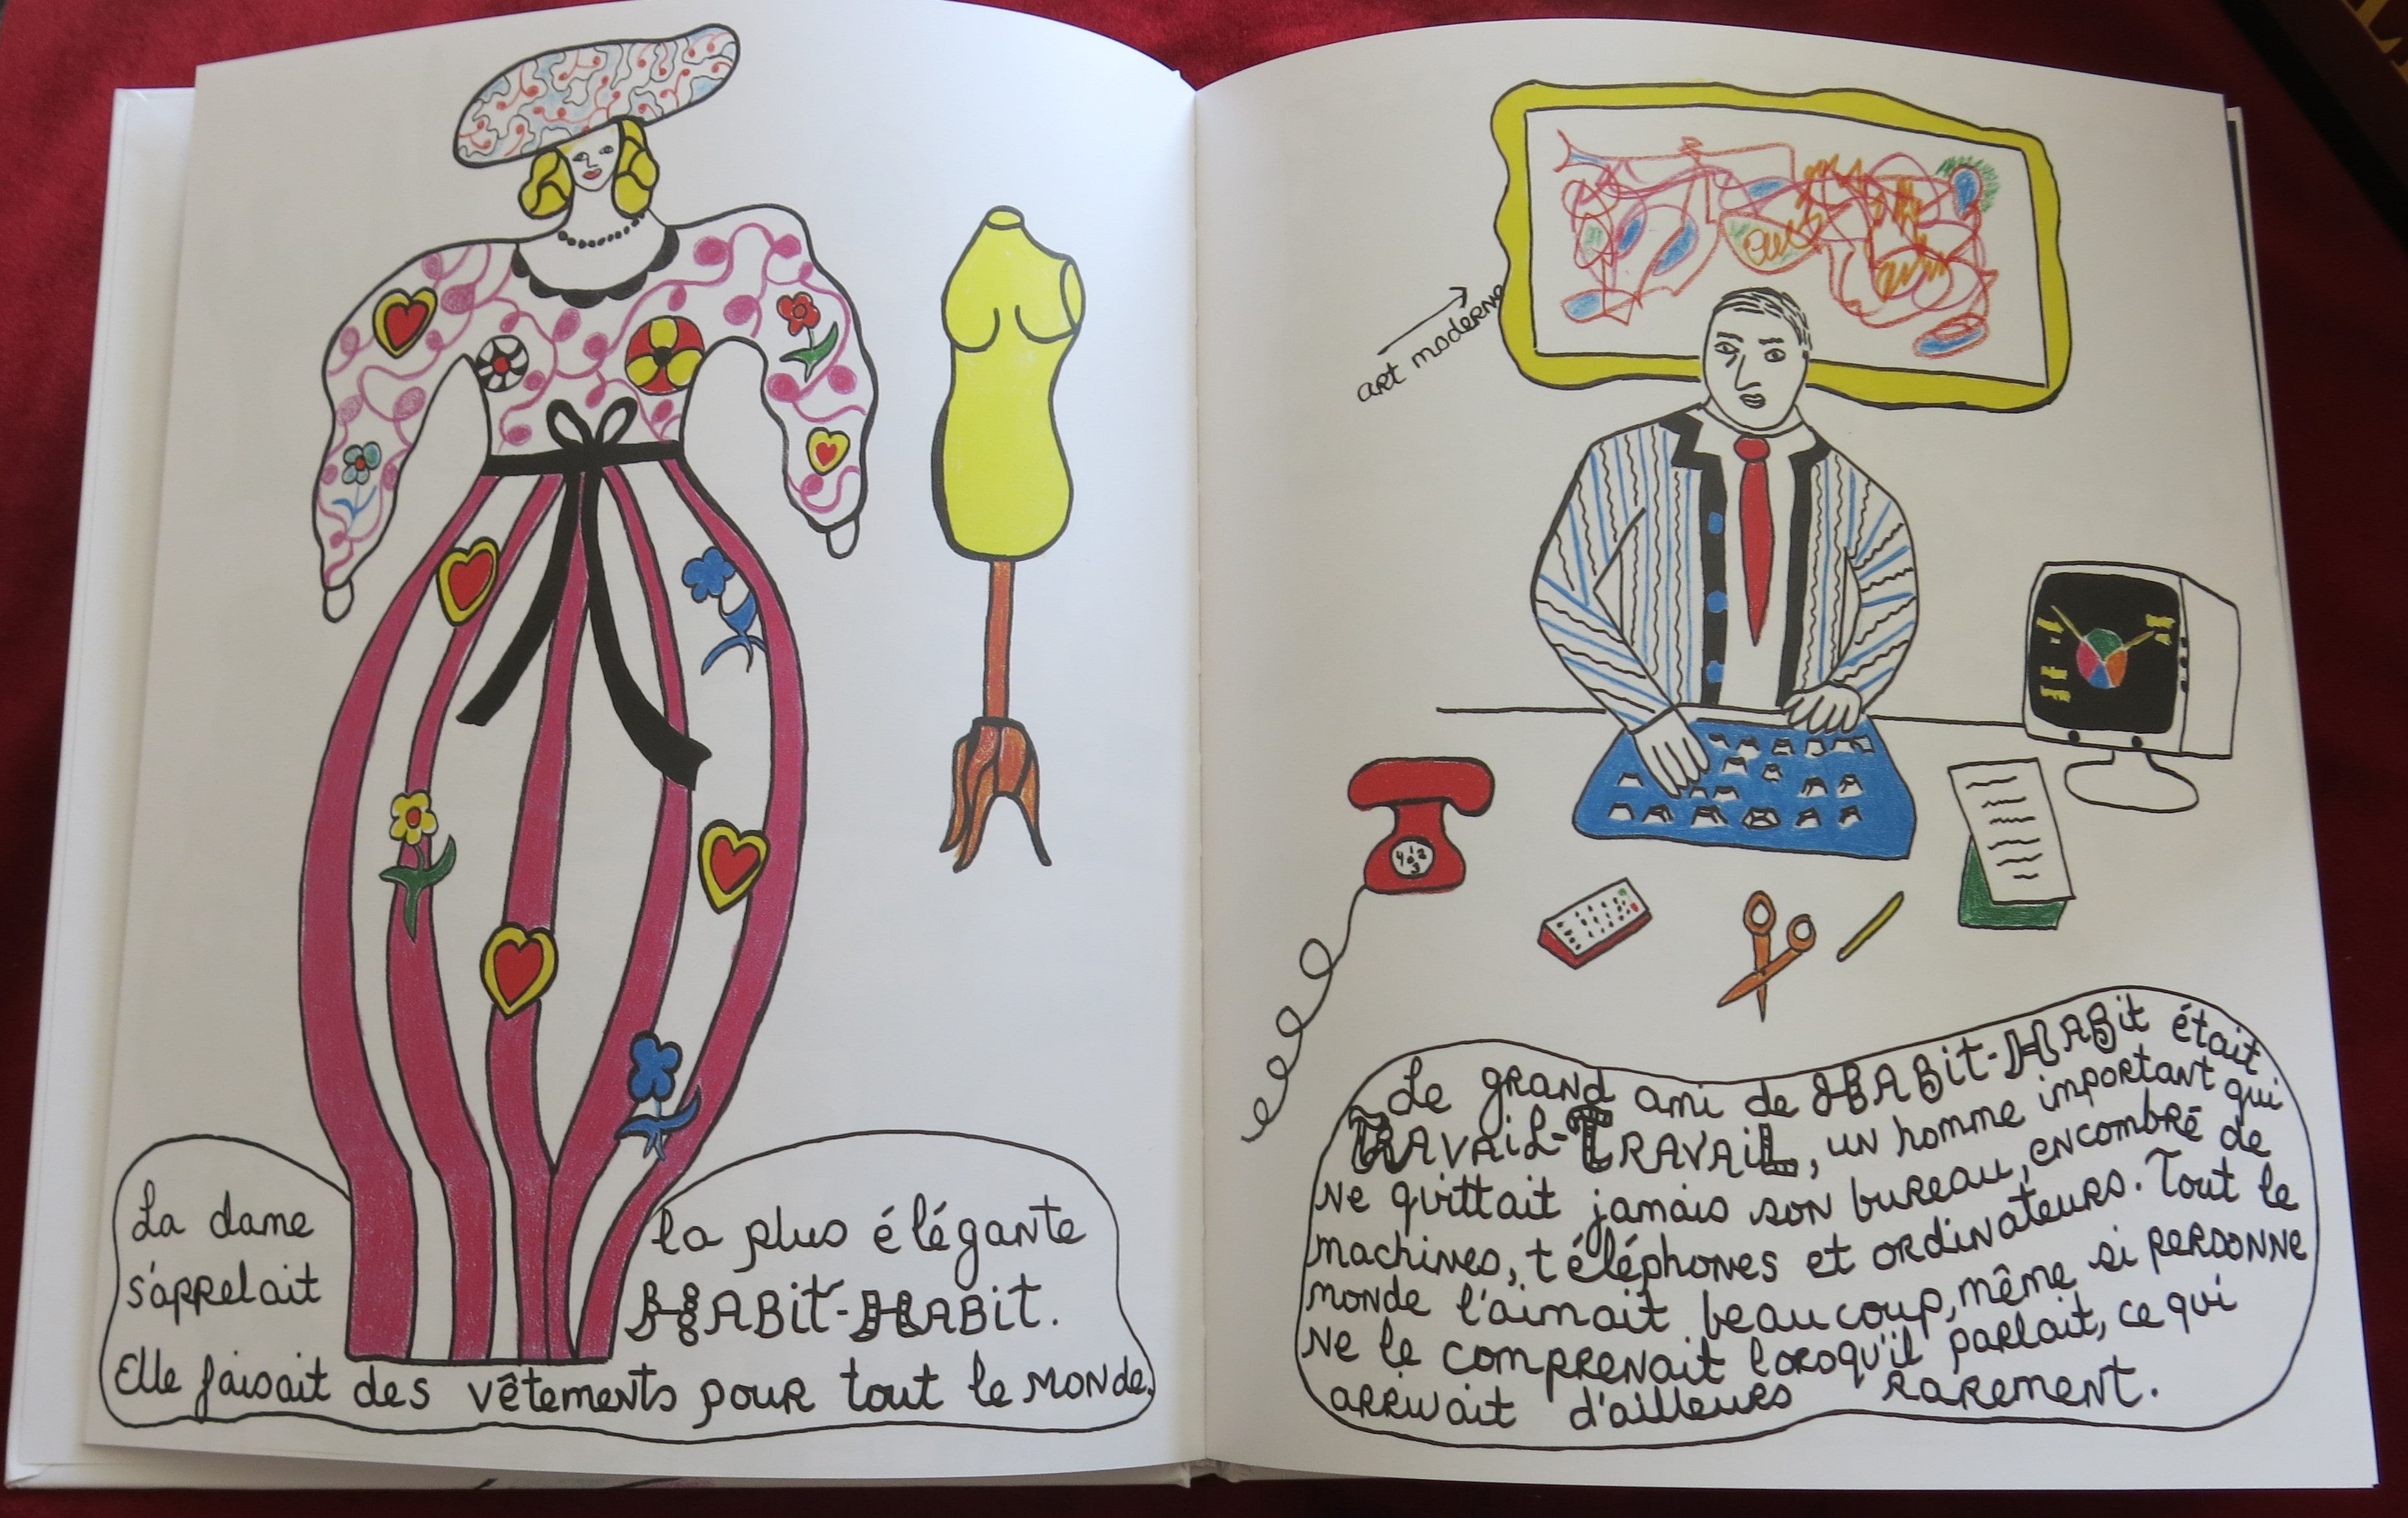 La dame la plus élégante
s'appelait HABit-HABit.
Elle faisait des vêtements pour tout le monde.
art moderne
Le grand ami de HABit-HABit était
TRAVAiL-TRAVAiL, un homme important qui
ne quittait jamais son bureau, encombré de
machines, téléphones et ordinateurs. Tout le
monde l'aimait beaucoup, même si personne
ne le comprenait lorsqu'il parlait, ce qui
arrivait d'ailleurs rarement.